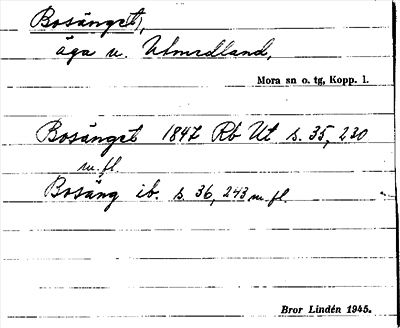 Bosänget,
äga u. Utmedland,
Mora sn o. tg, Kopp. l.
Bosänget 1847 Rb Ut s. 35, 230
m.fl.
Bosäng ib. s. 36, 243 m.fl.
Bror Lindén 1945.